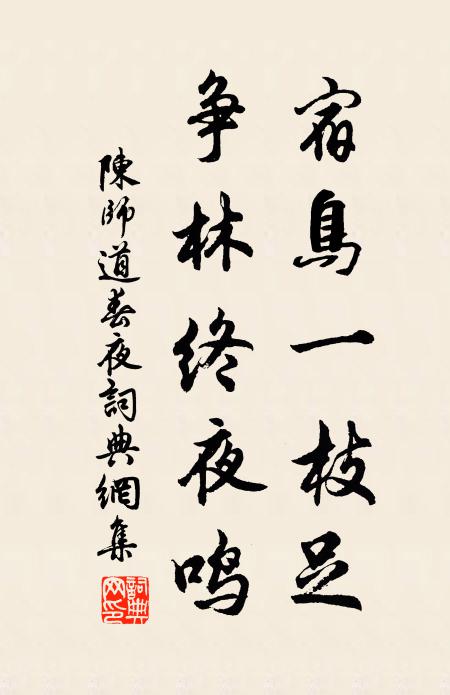 宿鳥一枝足
争林终夜鸣
陳師道春夜詞典網集
詞典
网印